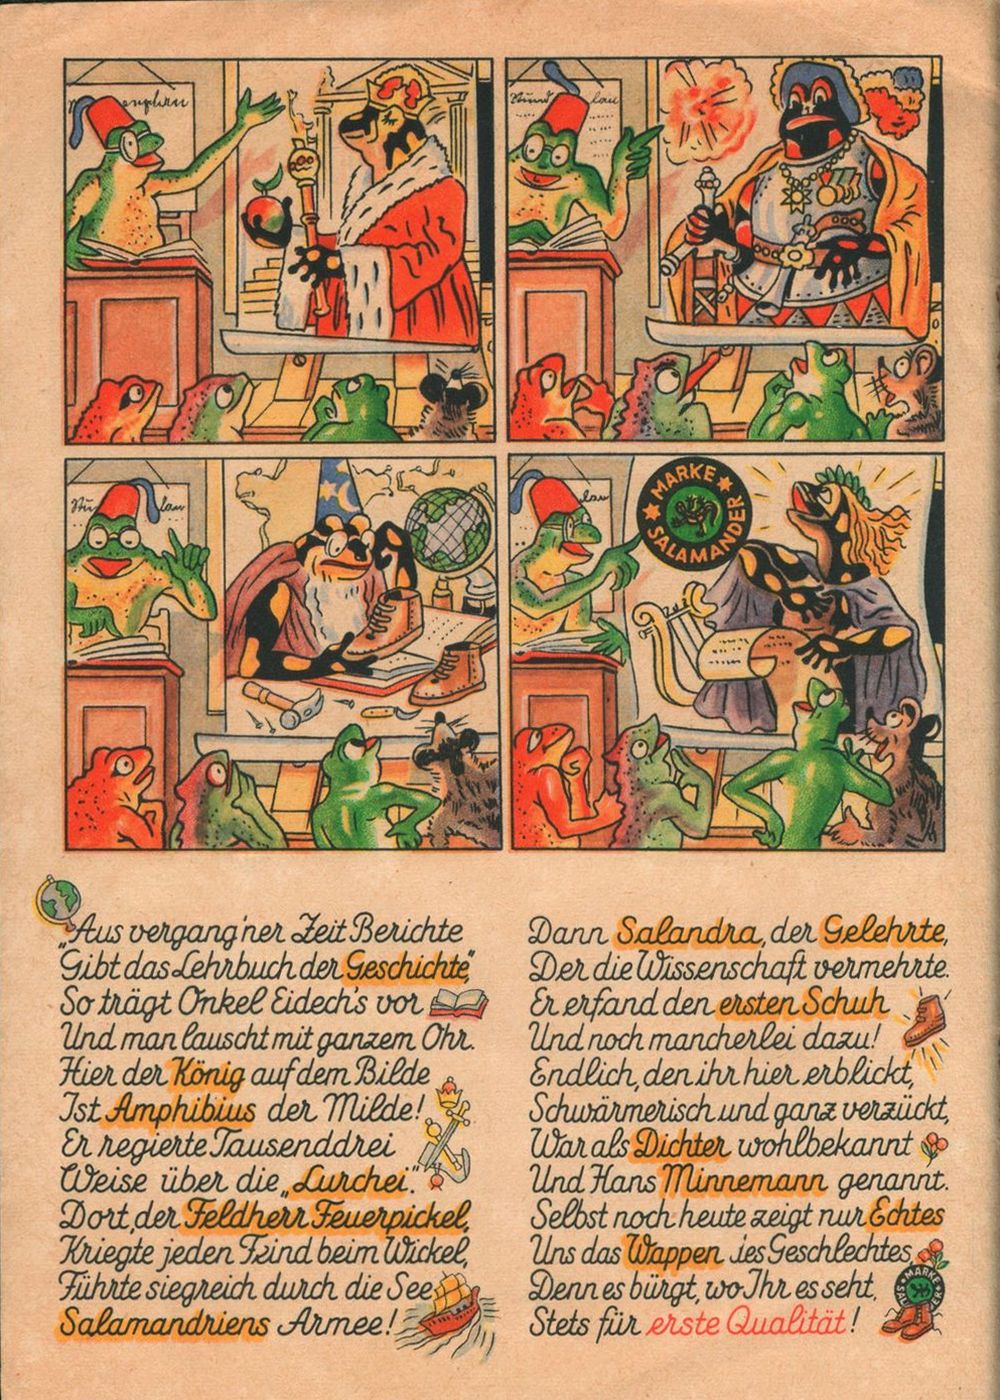 MARKE
SALAMANDER
„Aus vergang'ner Zeit Berichte
Gibt das Lehrbuch der Geschichte,"
So trägt Onkel Eidech's vor
Und man lauscht mit ganzem Ohr.
Hier der König auf dem Bilde
Ist Amphibius der Milde!
Er regierte Tausenddrei
Weise über die „Lurchei".
Dort, der Feldherr Feuerpickel,
Kriegte jeden Feind beim Wickel,
Führte siegreich durch die See
Salamandriens Armee!
Dann Salandra, der Gelehrte,
Der die Wissenschaft vermehrte.
Er erfand den ersten Schuh
Und noch mancherlei dazu!
Endlich, den ihr hier erblickt,
Schwärmerisch und ganz verzückt,
War als Dichter wohlbekannt
Und Hans Minnemann genannt.
Selbst noch heute zeigt nur Echtes
Uns das Wappen des Geschlechtes,
Denn es bürgt, wo Ihr es seht,
Stets für erste Qualität!
MARKE